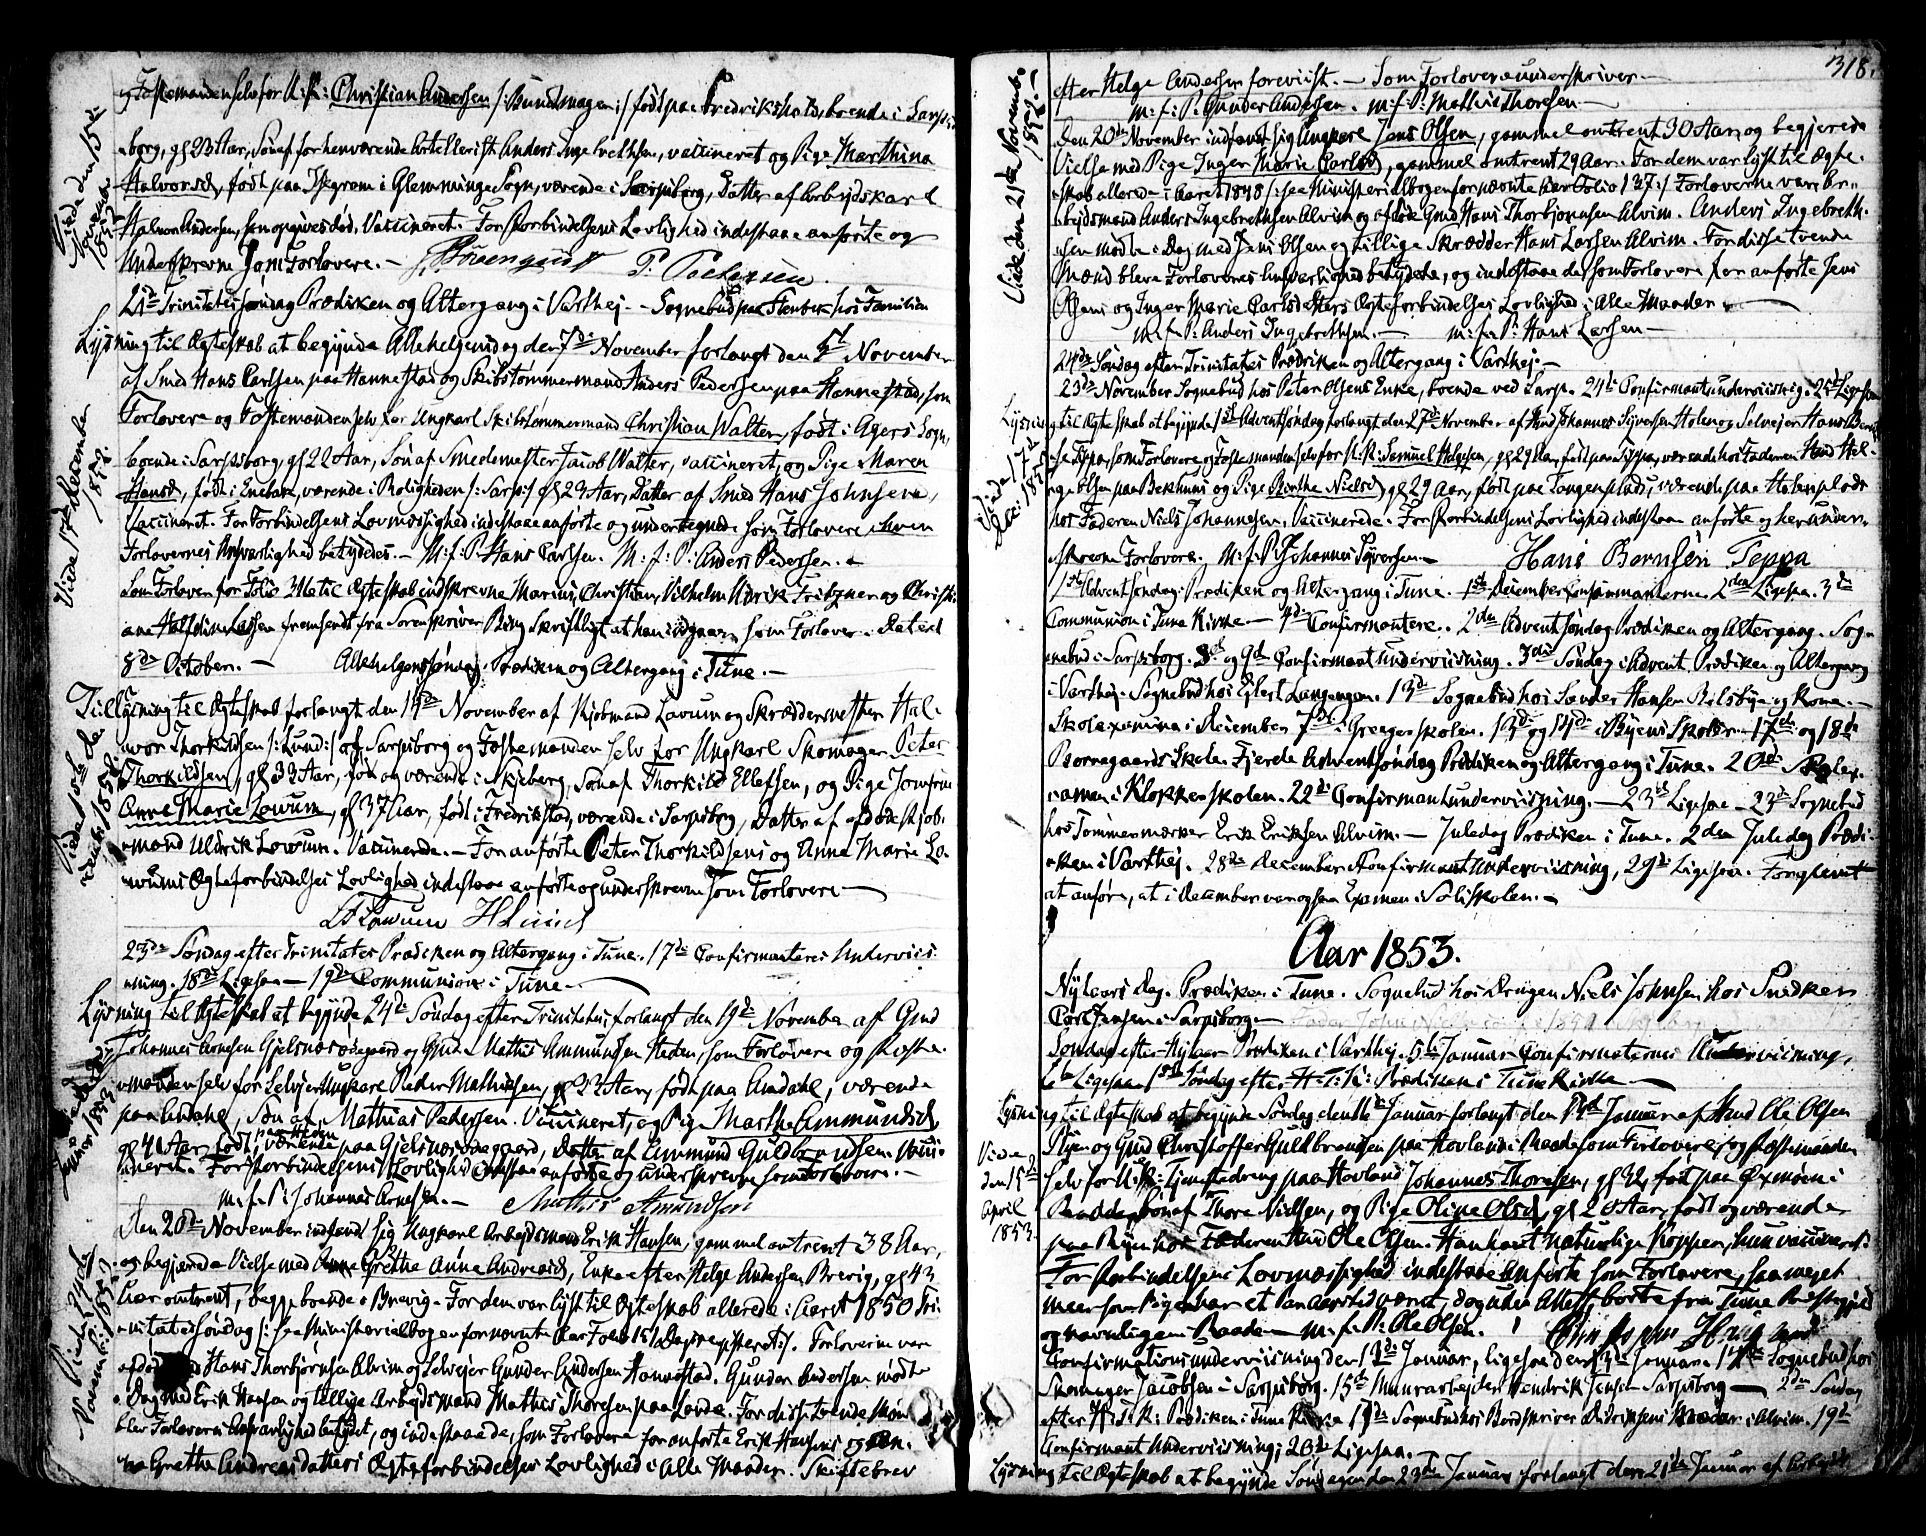 Fæstemanden selv for U: K: Christian Andersen /: Bundtmager :/ født paa Fredrikshald, boende i Sarps-
borg, gl 23 Aar, Søn af forhenværende Artellerist Anders Ingebrethsen, vaccineret og Pige Marthina
Halvorsd, født paa i Glemminge Sogn, værende i Sarpsborg, Datter af Arbejdskarl
Halvor Andersen, som opgives død. Vaccineret. For Forbindelsens Lovlighed indestaae anførte og
Underskrevne som Forlovere. -
P. Pettersen
Viede den 15de November 1852
21de Trinitatis søndag Prædiken og Altergang i Varthej. - Sognebud paa Stenbek hos Familien
Lysning til Ægteskab at begynde Allehelgensdag den 7de November forlangt den 5te November
af Smed Hans Carlsen paa Hannestad og Skibstømmermand Anders Pedersen paa Hannestad, som
Forlovere og Fæstemanden selv for Ungkarl Skibstømmermand Christian Walter, født i Agers Sogn,
boende i Sarpsborg, gl 22 Aar, Søn af Smedemester Jacob Walter, vaccineret, og Pige Maren
Hansd, født i Enebak, værende i Roligheden /: Sarps :/ gl 23 Aar, Datter af Smed Hans Johnsen,
Vaccineret. For Forbindelsens Lovmæssighed indestaae anførte og undertegnede som Forlovere, hvem
Forlovernes Ansvarlighed betydedes. - M: f: P: Hans Carlsen. M: f: P: Anders Pedersen. -
Viede 17de December 1852.
Som Forlover for Folio til Ægteskab indskrevne Marius, Christian, Vilhelm Ulrik Fritzner og Christi-
ane Larsen fremsendt fra Sorenskriver Bing Skriftligt at han indgaaer som Forlover. Dateret
8de October. - Allehelgenssøndag. Prædiken og Altergang i Tune. -
Tillysning til Ægteskab forlangt den 14de November af Kjøbmand Lowum og Skræddermester Hal-
vor Thorkildsen /: Lund :/ af Sarpsborg og Fæstemanden selv for Ungkarl Skomager Peter
Thorkildsen, gl 33 Aar, født og værende i Skjeberg, Søn af Thorkild Ellefsen, og Pige Jomfrue
Anne Marie Lowum, gl 37 Aar, født i Fredrikstad, værende i Sarpsborg, Datter af afdøde Kjøb-
mand Uldrik Lowum. Vaccinerede. - For anførte Peter Thorkildsens og Anne Marie Lo-
wums Ægteforbindelses Lovlighed indestaae anførte og underskrevne som Forlovere -
Lowum H Lund
23de Søndag efter Trinitatis Prædiken og Altergang i Tune. 17de Confirmanters Underviis-
ning. 18de Ligesaa - 19de Communion i Tune. -
Lysning til Ægteskab at begynde 24de Søndag efter Trinitatis, forlangt den 19de November af Gmd
Johannes Arnesen Gjelsnæs ødegaard og Gmd Mathis Ammundsen Heden, som Forlovere og Fæste-
manden selv for Selvejer Ungkarl Peder Mathisen, gl 23 Aar, født paa Amdahl, værende
paa Amdahl, Søn af Mathias Pedersen. Vaccineret, og Pige Marthe Ammundsd,
gl 40 Aar, født paa Heden, værende paa Gjelsnæs ødegaard, Datter af Ammund Guldbrandsen. Vacci-
neret. Forbindelsens Lovlighed indestaae anførte og underskrevne som Forlovere. -
m: f: P: Johannes Arnesen. - Mathis Amundsen
Den 20de November indfandt sig Ungkarl Arbejdsmand Erik Hansen, gammel omtrent 38 Aar,
og begjærede Vielse med Anne Grethe Anne Andreasd, Enke efter Helge Andersen Brevig, gl 43
Aar omtrent, begge boende Brevig. For dem var lyst til Ægteskab allerede i Aaret 1850 Tri-
nitatissøndag /: see Ministerialbogen for nævnte Aar Folio 151 Dagsregisteret :/. Forloverne var
afdøde Hans Thorbjørnsen Alvim og Selvejer Gunder Andersen Hannestad. Gunder Andersen mødte
i Dag med Erik Hansen og tillige Arbejdsmand Mathis Thoresen paa Lande. For disse tvende Mænd
blev Forlovernes Ansvarlighed betydet, og indestaae de, som Forlovere for anførte Erik Hansens og An-
ne Grethe Andreasdatters Ægteforbindelses Lovlighed i Alle Maader. Skiftebrev
318.
efter Helge Andersen foreviist. - Som Forlovere underskriver -
m: f: P: Gunder Andersen. m: f: P: Mathis Thoresen -
Viede den 21de November 1852. -
Den 20de November indfandt sig Ungkarl Jens Olsen, gammel omtrent 30 Aar, og begjerede
Vielse med Pige Inger Marie Carlsd, gammel omtrent 29 Aar. For dem var lyst til Ægte-
skab allerede i Aaret 1848 /: see Ministerialbogen for nævnte Aar Folio 137 :/ Forloverne vare Ar-
bejdsmand Anders Ingebrethsen Alvim og afdøde Gmd Hans Thorbjørnsen Alvim. Anders Ingebreth-
sen mødte i Dag med Jens Olsen og tillige Skrædder Hans Larsen Alvim. For disse tvende
Mænd bleve Forlovernes Ansvarlighed betydede, og indestaae de som Forlovere for anførte Jens
Olsens og Inger Marie Carlsdatters Ægteforbindelses Lovlighed i Alle Maader. -
m: f: P: Anders Ingebrethsen. - m: f: P: Hans Larsen -
24de Søndag efter Trinitatis Prædiken og Altergang i Varthej. -
23de November Sognebud hos Peter Olsens Enke, boende ved Sarp. 24de Confirmantunderviisning. 25de Ligesaa
Lysning til Ægteskab at begynde 1ste Adventsøndag forlangt den 27de November af Gmd Johannes Syversen Holen og Selvejer Hans
Teppa, som Forlovere og Fæstemanden selv for U: K: Samuel Helgesen, gl 29 Aar, født paa Teppa, værende hos Faderen Hel-
ge Olsen paa Bekhuus og Pige Birthe Nielsd, gl 29 Aar, født paa Tangenplads, værende paa Holenplads
hos Faderen Niels Johannesen. Vaccinerede. For Forbindelsens Lovlighed indestaae anførte og herunder-
skrevne Forlovere. M: f: P: Johannes Syversen. - Hans Bernsen Teppa
1ste Adventsøndag. Prædiken og Altergang i Tune. 1ste December Confirmanterne 2den Ligesaa. 3de
Communion i Tune Kirke - 4de Confirmantere. 2den Adventsøndag Prædiken og Altergang. Sog-
nebud i Sarpsborg. 8de og 9de Confirmantunderviisning. 3die Søndag i Advent Prædiken og Altergang
i Varthej. Sognebud hos Eglert Langengen. 13de Sognebud hos Sander Hansen og Kone. -
Skolexamina i December 7de i Greagerskolen. 13de og 14de i Byens Skoler - 17de og 18de
Borregaards Skole. Fjerde Adventsøndag Prædiken og Altergang i Tune. 20de Skolex-
amen i Klokkerskolen. 22de Confirmantunderviisning. - 23de Ligesaa - 23de Sognebud
hos Tømmermærker Erik Eriksen Alvim. - Juledag Prædiken i Tune. 2den Juledag Prædi-
ken i Varthej. 28de December Confirmantunderviisning, 29de Ligesaa. Forglemt
at anføre, at i December var ogsaa Examen i Soliskolen. -
Aar 1853.
Nytaars Dag. Prædiken i Tune. Sognebud hos Drengen Niels Johnsen hos Snedker
Carl Jensen i Sarpsborg. -
Søndag efter Nytaar Prædiken i Varthej. 5te Januar Confirmaternes Underviisning,
6te Ligesaa. 1ste Søndag efter H: T: K: Prædiken i Tune Kirke -
Lysning til Ægteskab at begynde Søndag den 16de Januar forlangt den Januar af Gmd Ole Olsen
Ryen og Gmd Christoffer Guldbrandsen paa Hovland i Raade som Forlovere, og Fæstemanden
Selv for U: K: Tjenestedreng paa Hovland Johannes Thoresen, gl 32, født paa i
Raade, Søn af Thore Nielsen, og Pige Oline Olsd, gl 20 Aar, født og værende
paa Ryen hos Faderen Gmd Ole Olsen. Han havt naturlige Kopper, hun vaccineret.
For Forbindelsens Lovmæssighed indestaae Anførte som Forlovere, saameget
meer som Pigen har et Par Aarstid været, dog uden Attest, borte fra Tune Præstegjeld
og navnligen i Raade - m: f: P: Ole Olsen.
Viede den 15de April 1853.
Confirmationsunderviisning den 12de Januar, ligesaa den 13de Januar. 14de Sognebud hos
Skomager Jacobsen i Sarpsborg. 15de Muurarbejder Hendrik Jensen Sarpsborg - 2den Søndag
efter H: T: K: Prædiken i Tune Kirke 19de Sognebud hos Bordskriver Didriksens Moder i Alvim. 19de
Confirmant Underviisning; 20de Ligesaa.
Lysning til Ægteskab at begynde Søndagen den 23de Januar forlangt den 21de Januar af